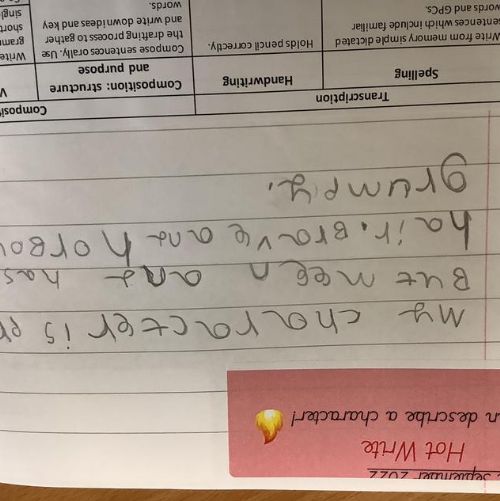 September 2022
Hot Write
n describe a character!
My character is pr
But meen and has
hair. Brave and horBou
grumpy.
Transcription
Composit
Spelling
Handwriting
Composition: structure
and purpose
V
Write from memory simple dictated
sentences which include familiar
words and GPCs.
Holds pencil correctly.
Compose sentences orally. Use
the drafting process to gather
and write down ideas and key
words.
Write
gramm
short
singl